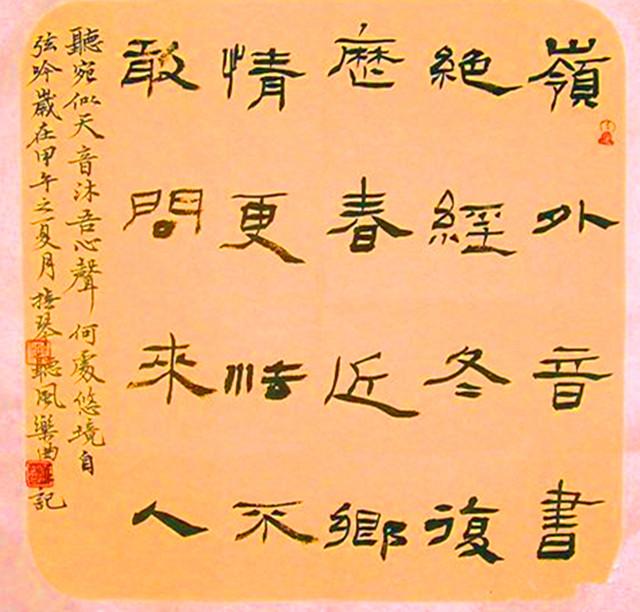 嶺外音書
絕經冬復
歷春近鄉
情更怯不
敢問來人
聽宛似天音沐吾心聲何處悠境自
弦吟歲在甲午之夏月撫琴聽風樂曲記